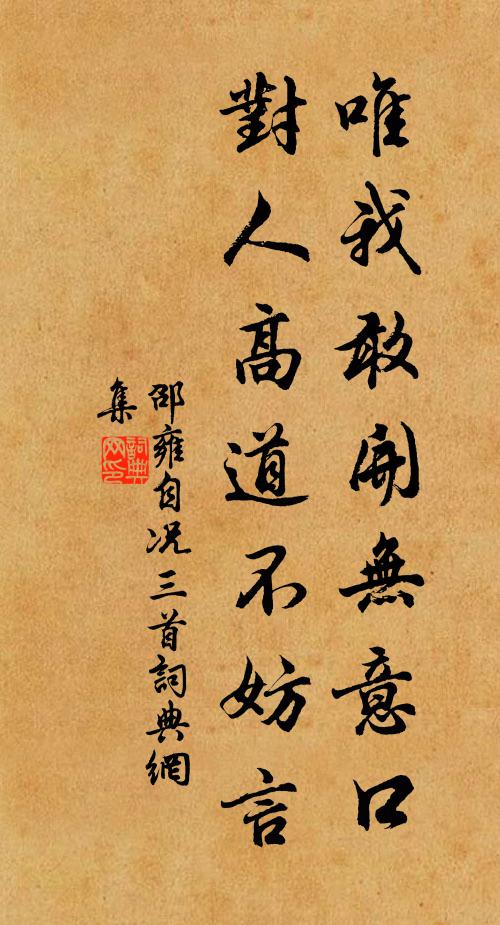 唯我敢開無意口
對人高道不妨言
邵雍自况三首詞典網
集
詞典網印